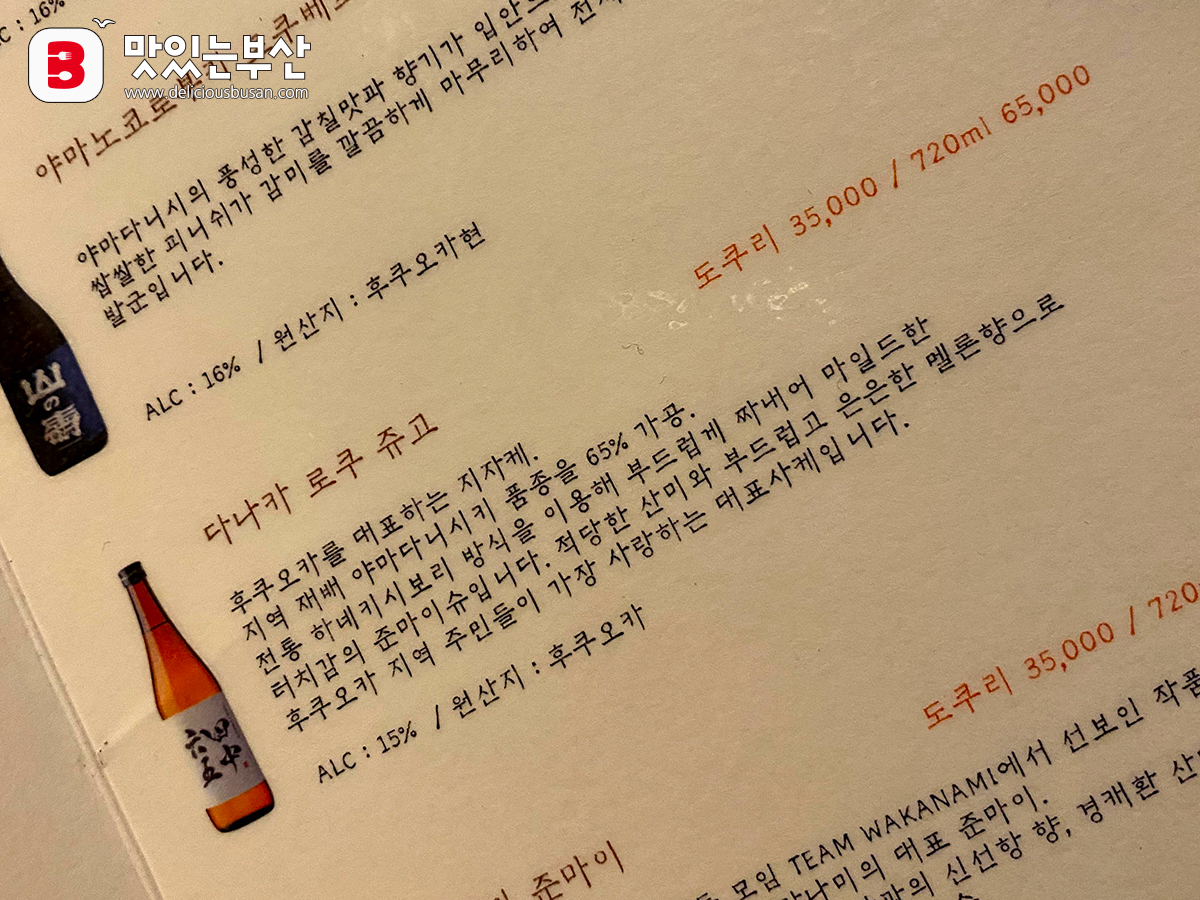 ALC : 16%
B 맛있는부산
www.deliciousbusan.com
야마노코로
야마다니시의 풍성한 감칠맛과 향기가 입안
쌉쌀한 피니쉬가 감미를 깔끔하게 마무리하여
발군입니다.
ALC : 16% / 원산지 : 후쿠오카현
山の
도쿠리 35,000 / 720ml 65,000
다나카 로쿠 쥬고
후쿠오카를 대표하는 지자케.
지역 재배 야마다니시키 품종을 65% 가공.
전통 하네키시보리 방식을 이용해 부드럽게 짜내어 마일드한
터치감의 준마이슈입니다. 적당한 산미와 부드럽고 은은한 멜론향으로
후쿠오카 지역 주민들이 가장 사랑하는 대표사케입니다.
ALC : 15% / 원산지 : 후쿠오카
田中
六五
도쿠리 35,000 / 720
준마이
모임 TEAM WAKANAMI에서 선보인 작품
대표 준마이.
신선항 향, 경쾌환